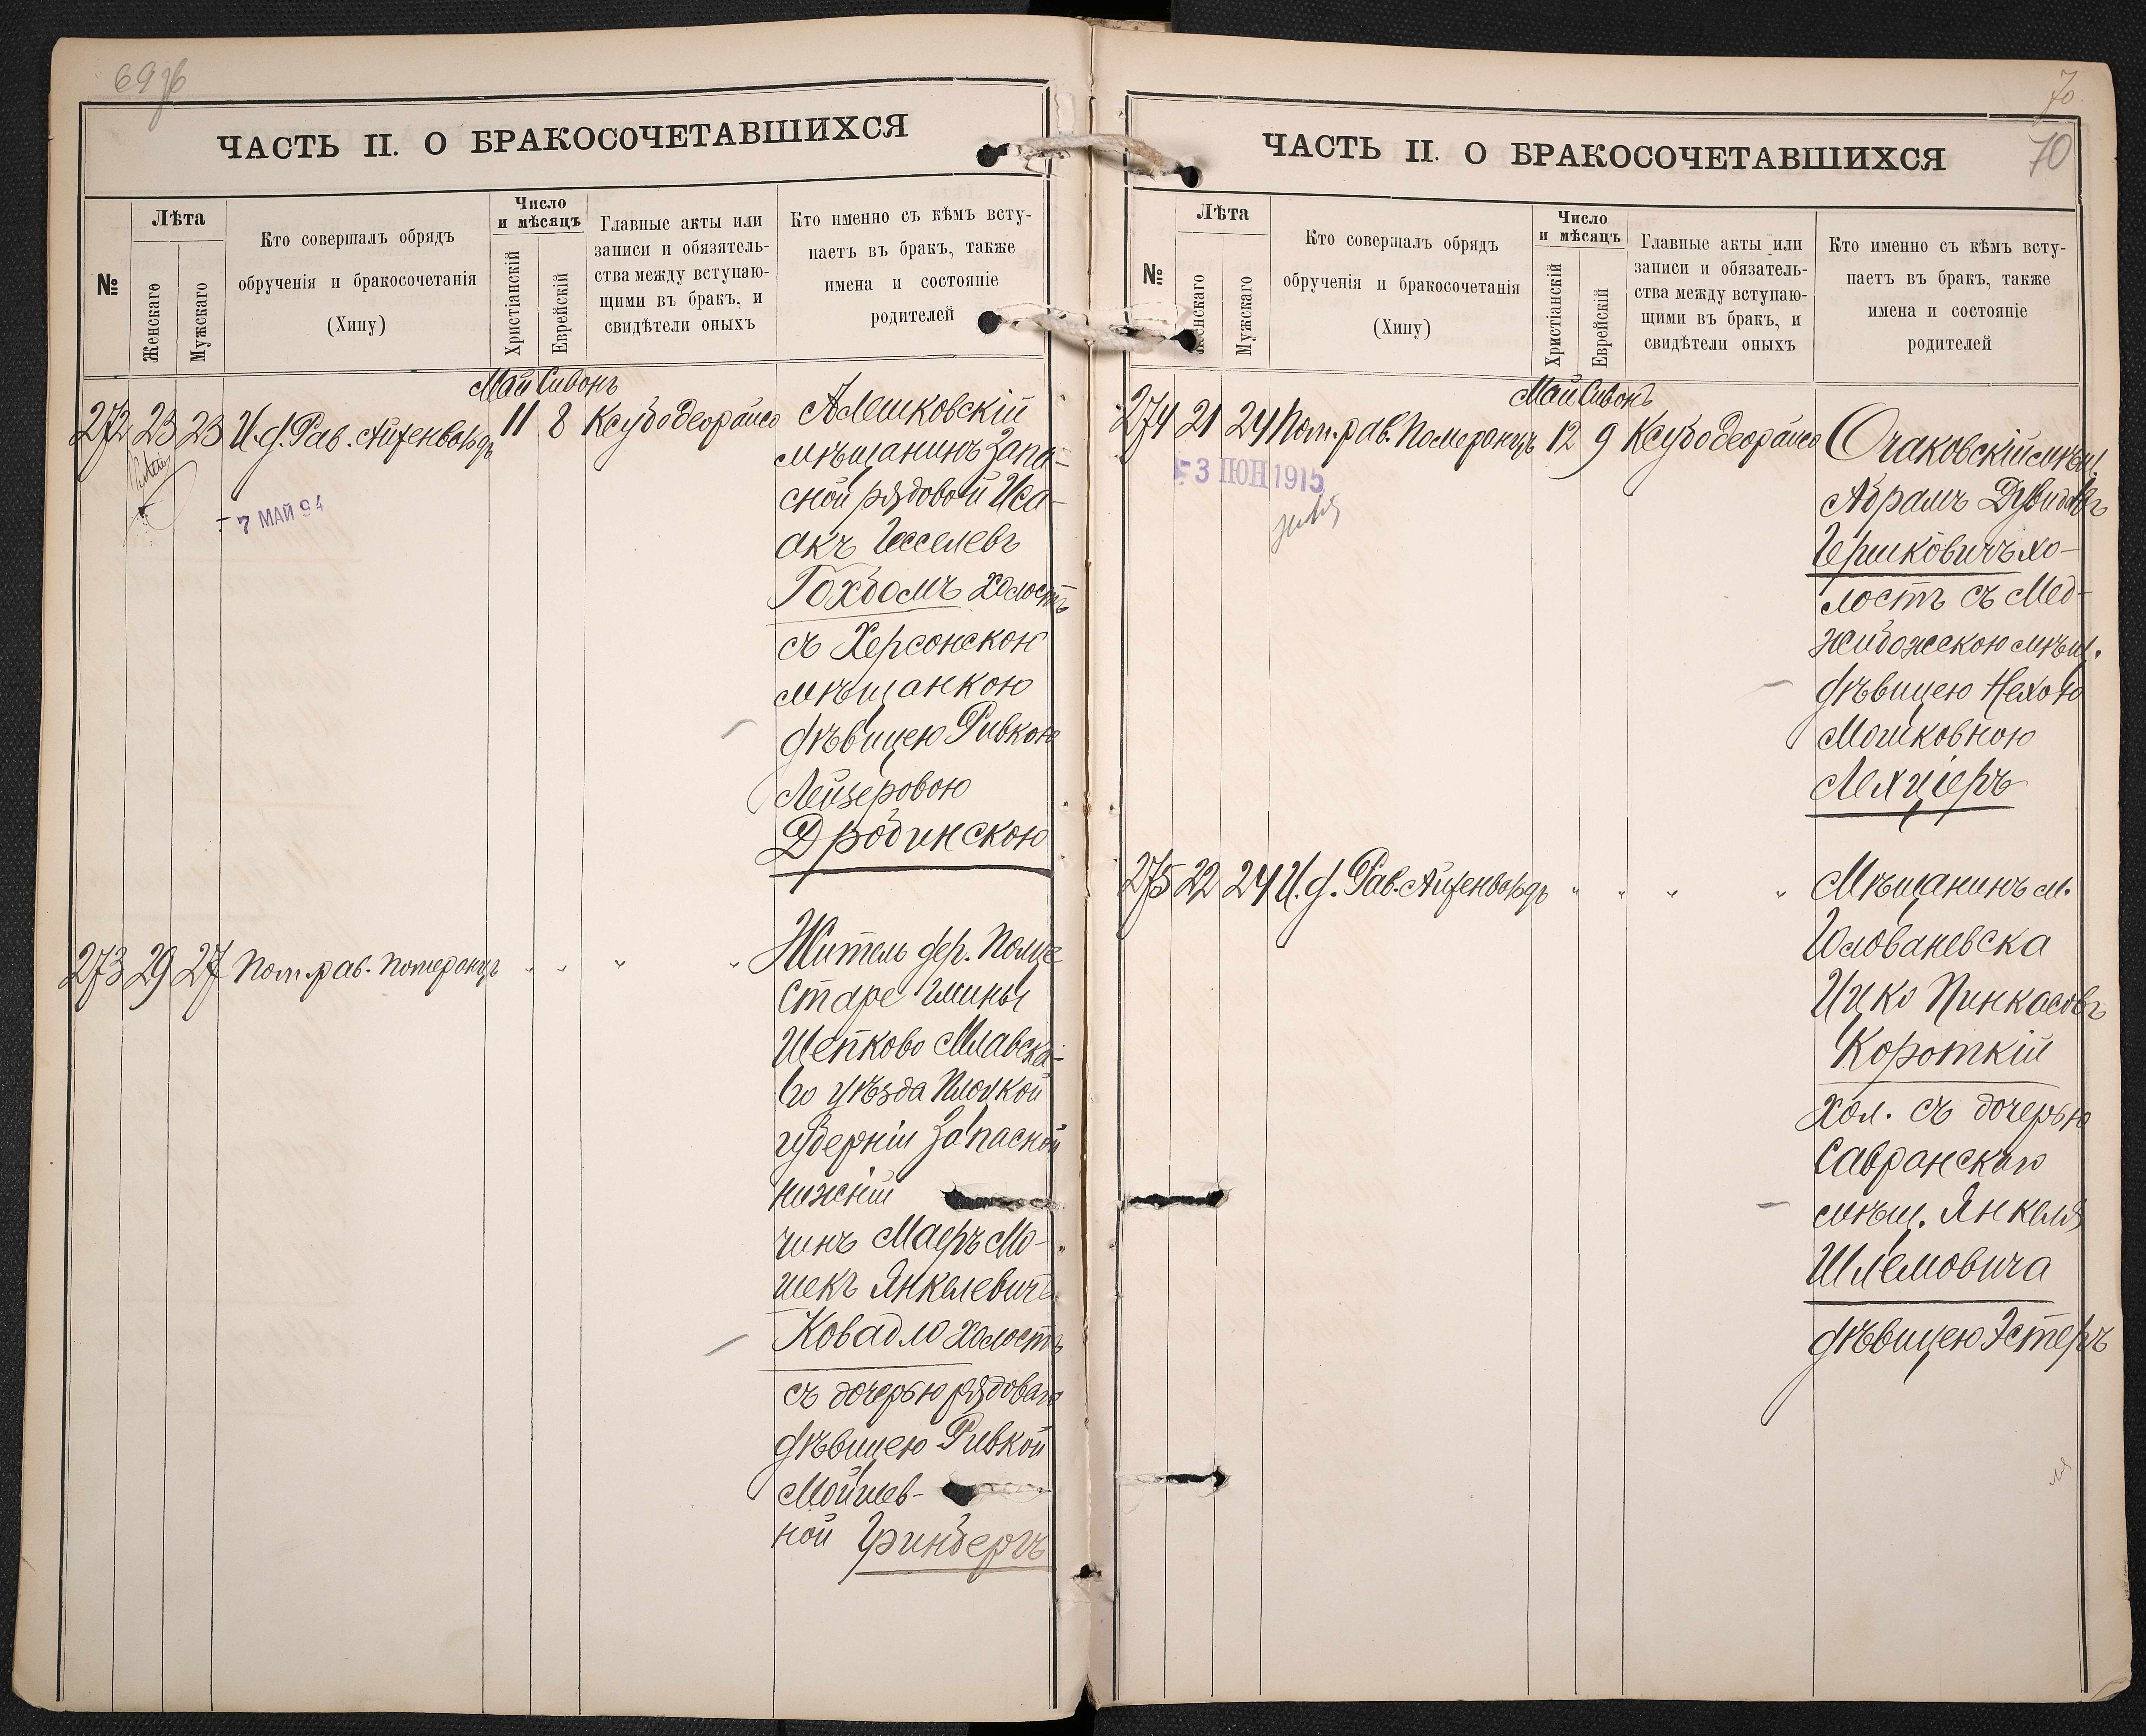 69об
ЧАСТЬ II. О БРАКОСОЧЕТАВШИХСЯ
№
Лѣта
Женскаго
Мужскаго
Кто совершалъ обрядъ
обрученія и бракосочетанія
(Хипу)
Число
и мѣсяцъ
Христіанскій
Еврейскій
Главные акты или
записи и обязятель-
ства между вступаю-
щими въ бракъ, и
свидѣтели оныхъ
Кто именно съ кѣмъ всту-
паетъ въ бракъ, также
имена и состояніе
родителей
Май Сивонъ
272 23 23 И.д. Рав. Айзенвальдъ 11 8 Ксубо Деорайсо
7 МАЙ 94
Алешковскій
мѣщанинъ Запа-
сной рядовой Иса-
акъ Іосселевъ
Гохбомъ холостъ
съ Херсонскою
мѣщанкою
дѣвицею Ривкою
Лейзеровою
Дробинскою
273 29 27 Пом. рав. Померанцъ " " " "
Житель дер. Польце
Старе гмины
Шепково Млавска-
го уѣзда Плоцкой
губерніи Запасной
нижній
чинъ Маеръ Мо-
шекъ Янкелевичъ
Ковадло холостъ
съ дочерью рядоваго
дѣвицею Ривкой
Мойшев-
ной Гринбергъ
70
70
ЧАСТЬ II. О БРАКОСОЧЕТАВШИХСЯ
№
Лѣта
Женскаго
Мужскаго
Кто совершалъ обрядъ
обрученія и бракосочетанія
(Хипу)
Число
и мѣсяцъ
Христіанскій
Еврейскій
Главные акты или
записи и обязатель-
ства между вступаю-
щими въ бракъ, и
свидѣтели оныхъ
Кто именно съ кѣмъ всту-
паетъ въ бракъ, также
имена и состояніе
родителей
Май Сивонъ
274 21 24 Пом. рав. Померанцъ 12 9 Ксубо Деорайсо
3 ІЮН 1915
Очаковскій мѣщ.
Абрамъ Дувидовъ
Гершковичъ хо-
лостъ съ Мед-
жибожскою мѣщ.
дѣвицею Нехою
Мошковною
Лехціеръ
275 22 24 И.д. Рав. Айзенвальдъ " " " "
Мѣщанинъ м.
Голованевска
Ицко Пинкасовъ
Короткій
хол. съ дочерью
Савранскаго
мѣщ. Янкеля
Шлемовича
дѣвицею Эстеръ